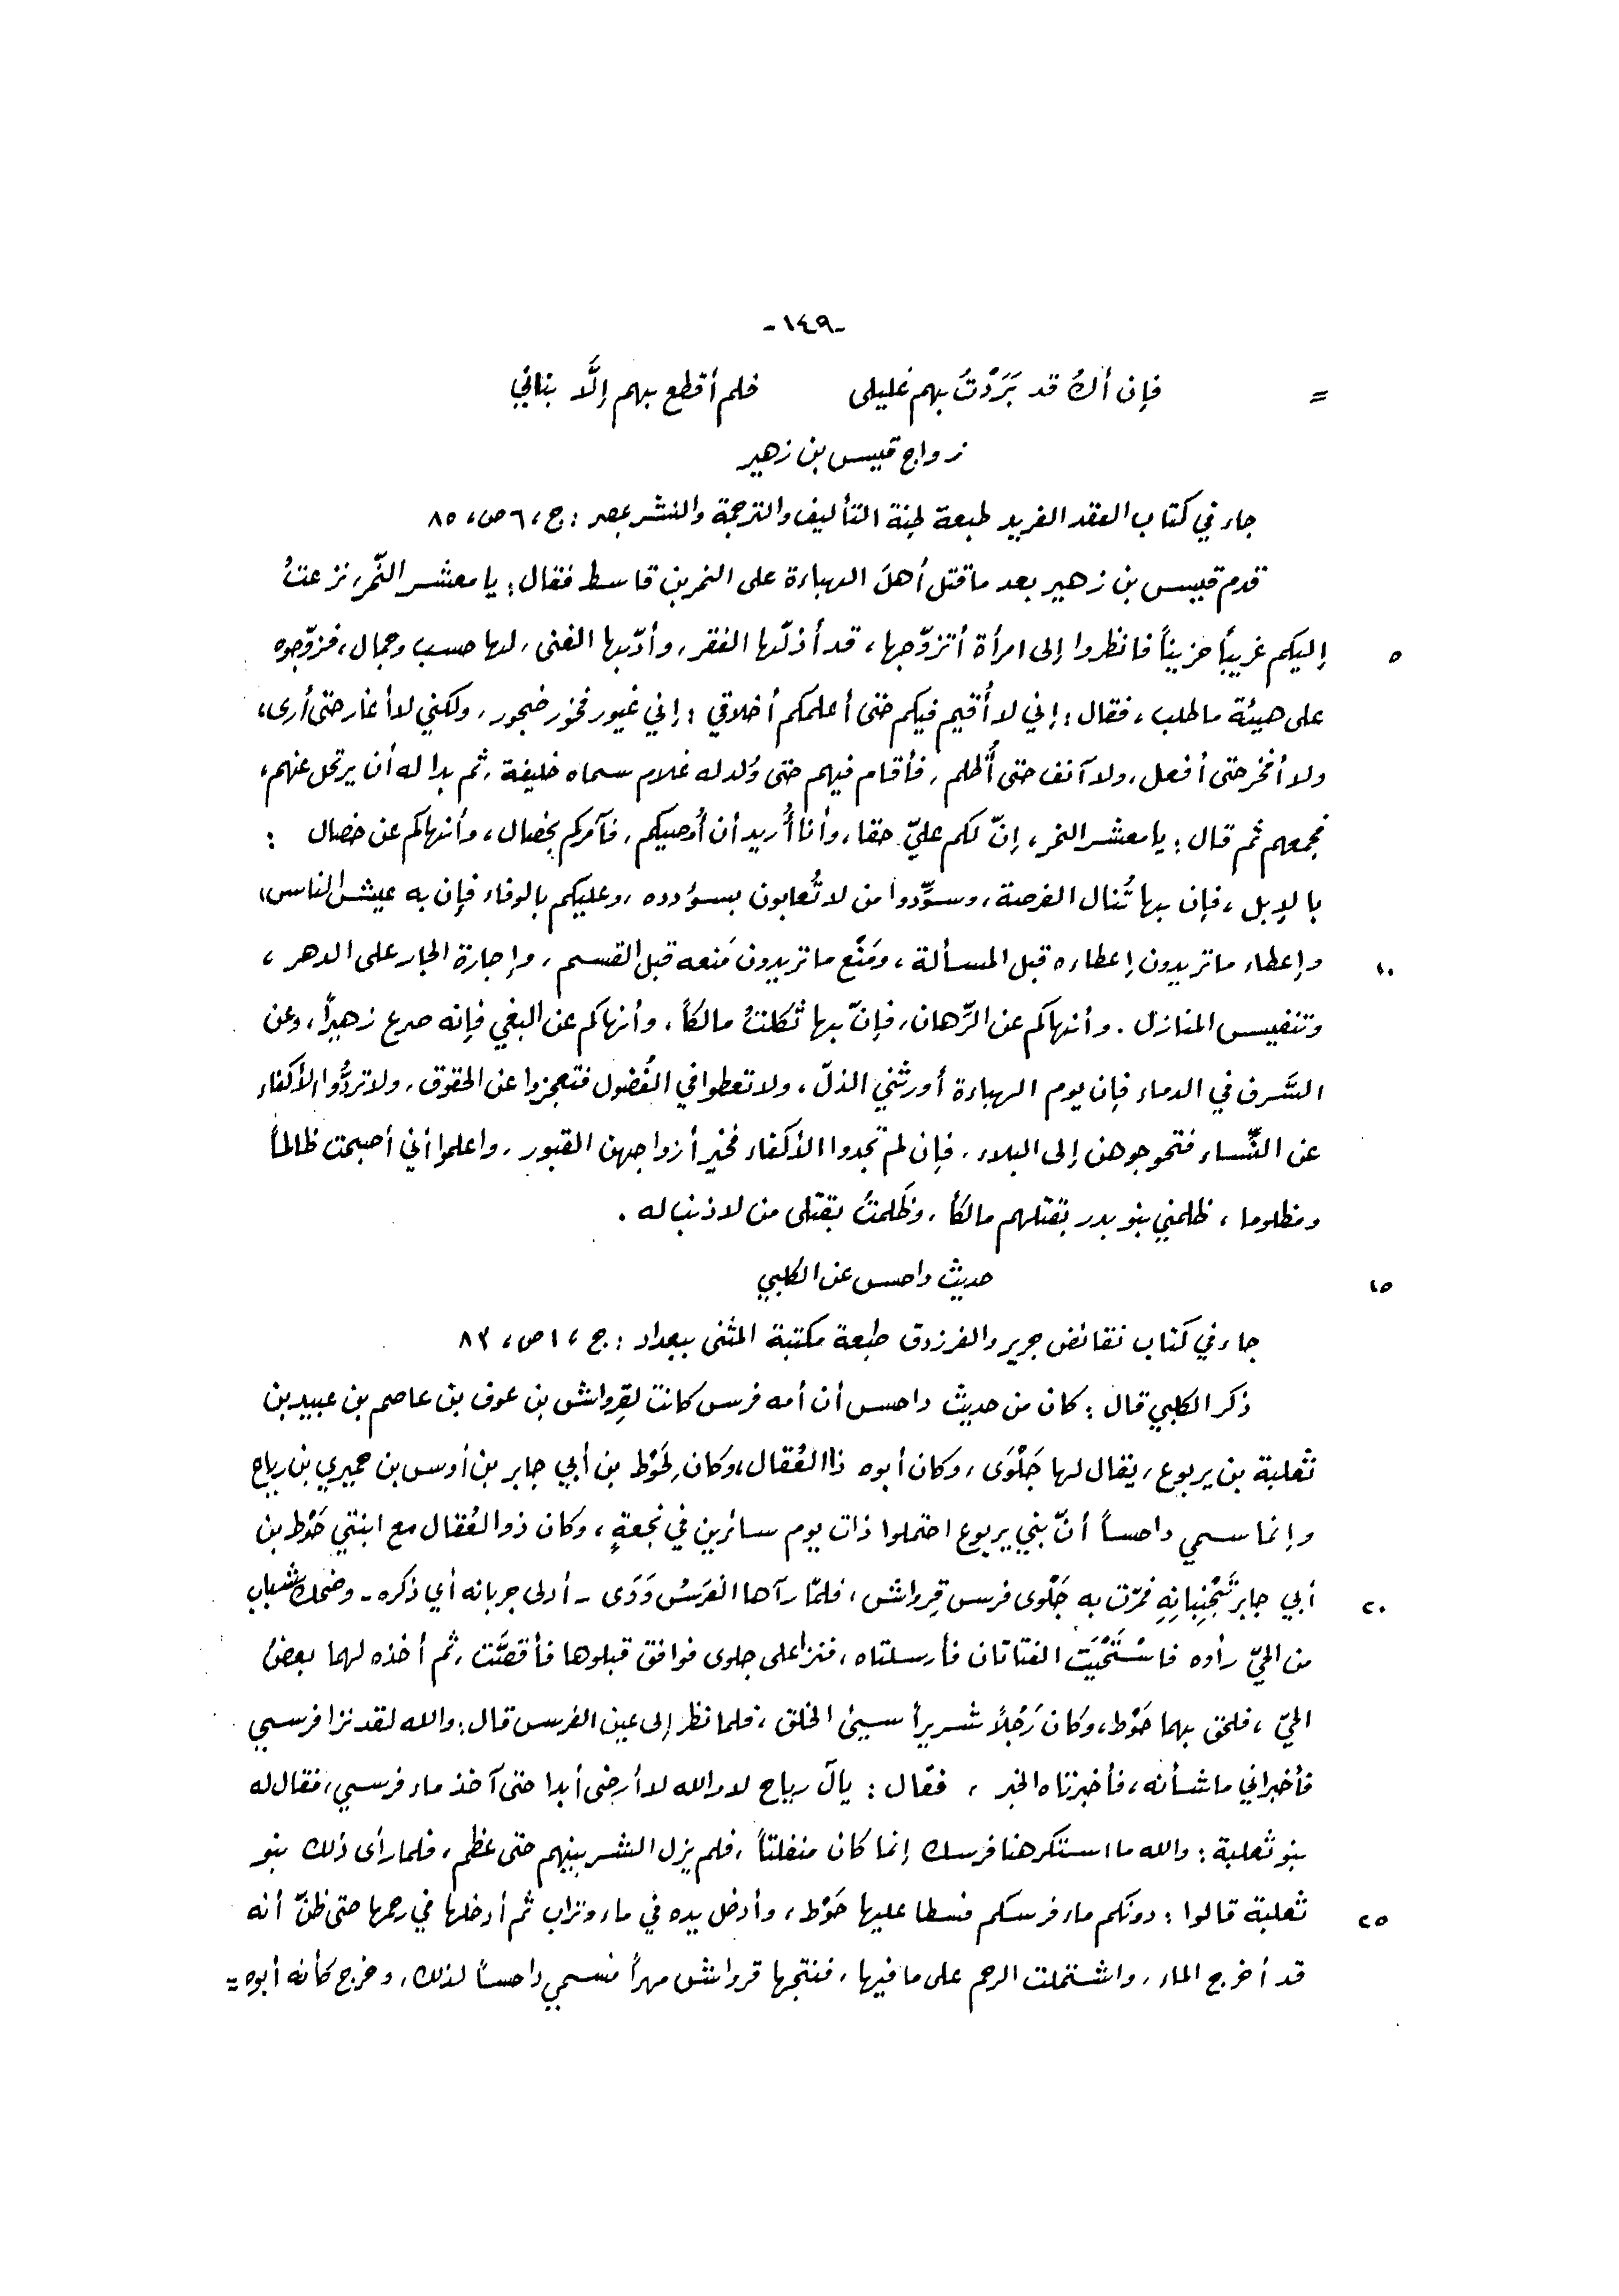 -١٤٩-
= فإن أكُ قد بَرَدْتُ بهم غليلى فلم أقطع بهم إلَّا بناني
زواج قيس بن زهير
جاء في كتاب العقد الفريد طبعة لجنة التأليف والترجمة والنشر بمصر : ج ، ٦ ص ، ٨٥
قدم قيس بن زهير بعد ما قتل أهلَ الهباءة على النمر بن قاسط فقال : يا معشر النّمر ، نزعتُ
٥ إليكم غريباً حزيناً فانظروا إلى امرأة أتزوّجها ، قد أذلّها الفقر ، وأدّبها الغنى ، لها حسب وجمال ، فزوّجوه
على هيئة ما طلب ، فقال : إني لا أُقيم فيكم حتى أعلمكم أخلاقي : إني غيور فخور ضجور ، ولكني لا أغار حتى أرى ،
ولا أفخر حتى أفعل ، ولا آنف حتى أُظلم ، فأقام فيهم حتى وُلد له غلام سماه خليفة ، ثم بدا له أن يرتحل عنهم ،
فجمعهم ثم قال : يا معشر النمر ، إنّ لكم عليّ حقا ، وأنا أُريد أن أُوصيكم ، فآمركم بخصال ، وأنهاكم عن خصال :
بالإبل ، فإن بها تُنال الفرصة ، وسوِّدوا من لا تُعابون بسؤدده ، وعليكم بالوفاء فإن به عيش الناس ،
١٠ وإعطاء ما تريدون إعطاءه قبل المسألة ، ومَنْع ما تريدون مَنعه قبل القسم ، وإجارة الجار على الدهر ،
وتنفيس المنازل . وأنهاكم عن الرّهان ، فإنّ بها ثكلتُ مالكاً ، وأنهاكم عن البغي فإنه صرع زهيراً ، وعن
السَّرف في الدماء فإن يوم الهباءة أورثني الذلّ ، ولا تعطوا في الفُضول فتعجزوا عن الحقوق ، ولا تردُّوا الأكفاء
عن النِّساء فتحوجوهن إلى البلاء ، فإن لم تجدوا الأكفاء فخير أزواجهن القبور ، واعلموا أني أصبحت ظالماً
ومظلوما ، ظلمني بنو بدر بقتلهم مالكاً ، وظَلمتُ بقتلى من لا ذنب له .
١٥ حديث داحس عن الكلبي
جاء في كتاب نقائض جرير والفرزدق طبعة مكتبة المثنى ببغداد : ج ، ١ ص ، ٨٣
ذكر الكلبي قال : كان من حديث داحس أن أمه فرس كانت لقِرواش بن عوف بن عاصم بن عبيد بن
ثعلبة بن يربوع ، يقال لها جَلْوَى ، وكان أبوه ذا العُقال ، وكان لِحَوْط بن أبي جابر بن أوس بن حميري بن رياح
وإنما سمي داحساً أنّ بني يربوع احتملوا ذات يوم سائرين في نُجعةٍ ، وكان ذو العُقال مع ابنتي حَوْط بن
٢٠ أبي جابر تَجْنِبانِهِ فمرّت به جَلْوى فرس قِرواش ، فلمّا رآها الفَرَسُ وَدَى - أدلى جربانه أي ذكره - وضحك شباب
من الحيّ رأوه فاسْتَحْيَت الفتاتان فأرسلتاه ، فنزا على جلوى فوافق قبلوها فأقصَّت ، ثم أخذه لهما بعضُ
الحيّ ، فلحق بهما حَوْط ، وكان رَجُلاً شريراً سيئ الخلق ، فلما نظر إلى عين الفرس قال : والله لقد نزا فرسي
فأخبراني ما شأنه ، فأخبرتاه الخبر ، فقال : يآل رياح لا والله لا أرضى أبدا حتى آخذ ماء فرسي ، فقال له
بنو ثعلبة : والله ما استكرهنا فرسك إنما كان منفلتاً ، فلم يزل الشر بينهم حتى عظم ، فلما رأى ذلك بنو
٢٥ ثعلبة قالوا : دونكم ماء فرسكم فسطا عليها حَوْط ، وأدخل يده في ماء وتراب ثم أدخلها في رحمها حتى ظنّ أنه
قد أخرج الماء ، واشتملت الرحم على ما فيها ، فنتجها قرواش مهراً فسمي داحساً لذلك ، وخرج كأنه أبوه =